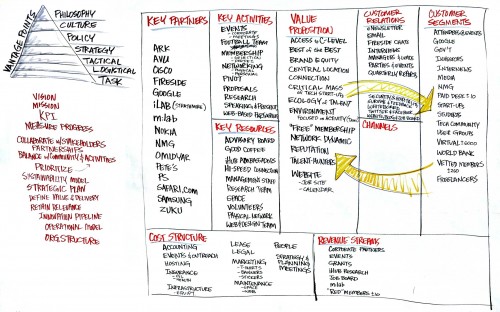 VANTAGE POINTS
PHILOSOPHY
CULTURE
POLICY
STRATEGY
TACTICAL
LOGISTICAL
TASK
VISION
MISSION
KPI
MEASURE PROGRESS
COLLABORATE W/ STAKEHOLDERS
PARTNERSHIPS
BALANCE W/ COMMUNITY & ACTIVITIES
PRIORITIZE
SUSTAINABILITY MODEL
STRATEGIC PLAN
DEFINE VALUE & DELIVERY
RETAIN RELEVANCE
INNOVATION PIPELINE
OPERATIONAL MODEL
ORG. STRUCTURE
KEY PARTNERS
ARK
AVU
CISCO
FIRESIDE
GOOGLE
iLAB (STRATHMORE)
m:lab
NOKIA
NMG
OMIDYAR
PETE'S
PS
SAFARI.COM
SAMSUNG
ZUKU
KEY ACTIVITIES
EVENTS
FOOTBALL TEAM
MEMBERSHIP
NETWORKING
PIVOT
PROPOSALS
RESEARCH
SPEAKING & PRESENCE
WEB-BASED PRESENCE
KEY RESOURCES
ADVISORY BOARD
GOOD COFFEE
HUB AMBASSADORS
HI-SPEED CONNECTION
MANAGEMENT STAFF
RESEARCH TEAM
SPACE
VOLUNTEERS
PHYSICAL NETWORK
WEB DESIGN TEAM
VALUE PROPOSITION
ACCESS TO C-LEVEL
BEST of the BEST
BRAND EQUITY
CENTRAL LOCATION
CONNECTION
CRITICAL MASS
OF TECH START-UPS
ECOLOGY of TALENT
ENVIRONMENT
"FREE" MEMBERSHIP
NETWORK DYNAMIC
REPUTATION
TALENT-HUNTERS
WEBSITE
- JOB SITE
- CALENDAR
CUSTOMER RELATIONS
eNEWSLETTER
EMAIL
FIRESIDE CHATS
INTERVIEWS
PARTIES & EVENTS
QUARTERLY REPORTS
CHANNELS
CUSTOMER SEGMENTS
ATTENDEES @ EVENTS
GOOGLE
GOV'T
INTERVIEWERS
MEDIA
NMG
START-UPS
STUDENTS
TECH COMMUNITY
USER GROUPS
VIRTUAL 7000
WORLD BANK
VETTED MEMBERS
FREELANCERS
COST STRUCTURE
ACCOUNTING
EVENTS & OUTREACH
HOSTING
INSURANCE
INFRASTRUCTURE
- EQUIPT
LEASE
LEGAL
MARKETING
- T-SHIRTS
- BANNERS
- STICKERS
MAINTENANCE
- SPACE
PEOPLE
STRATEGY & PLANNING
MEETINGS
REVENUE STREAMS
CORPORATE PARTNERS
EVENTS
GRANTS
iHUB RESEARCH
JOB BOARD
m:lab
"RED" MEMBERS